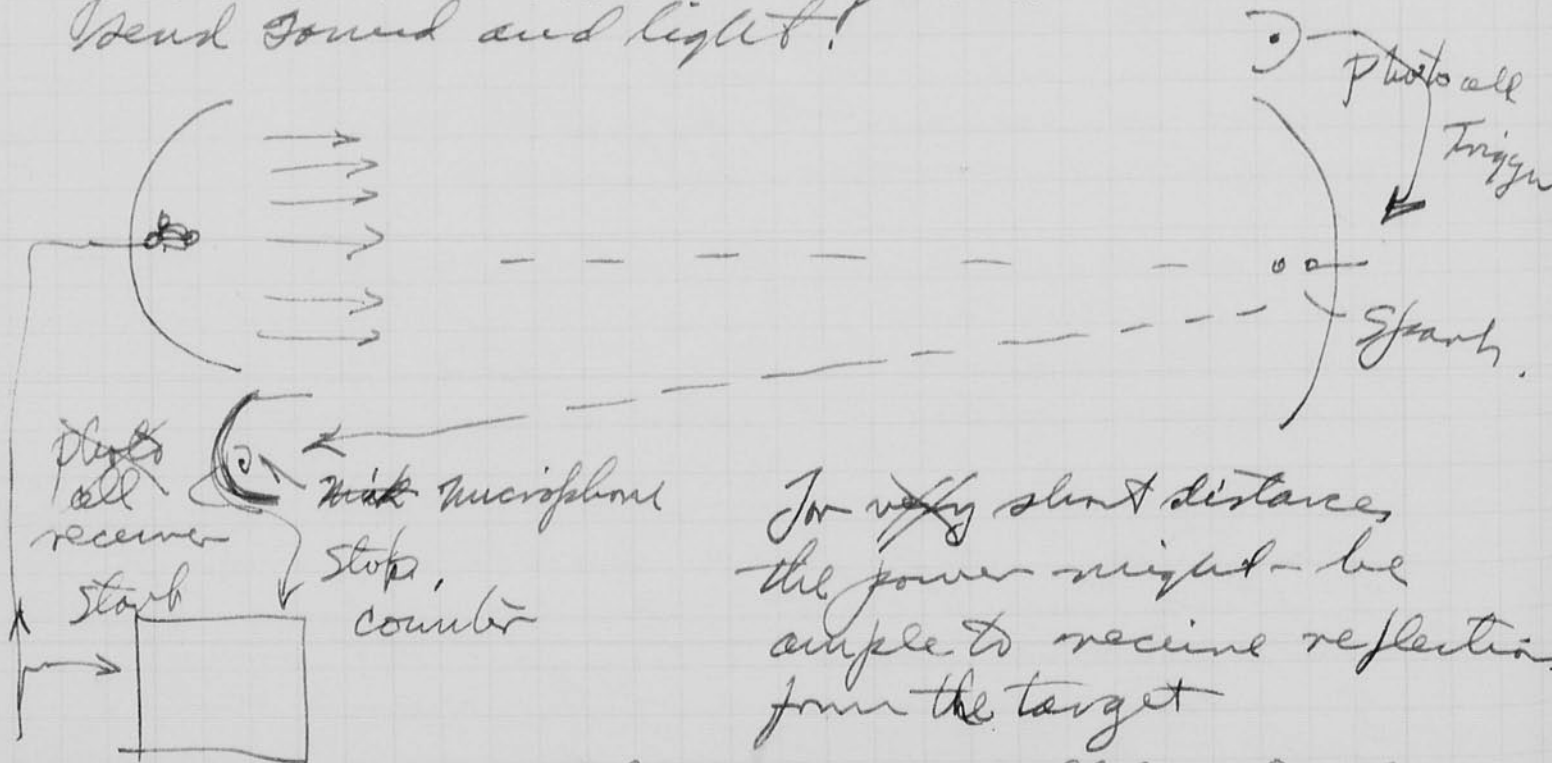 Send sound and light!
Photocell
Trigger
Spark.
photo
cell
receiver
start
mik microphone
Stop,
counter
For very short distance,
the power might be
ample to receive reflection
from the target